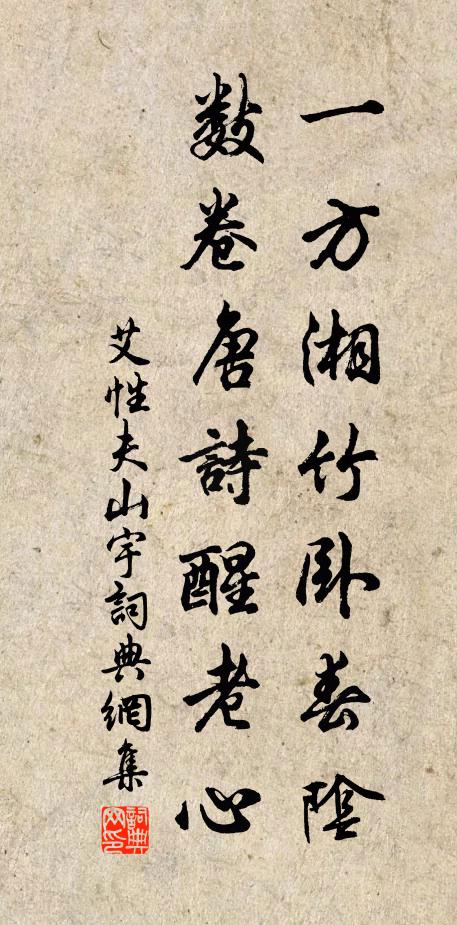 一方湘竹卧春陰
數卷唐詩醒老心
艾性夫山宇詞典網集
詞典網印